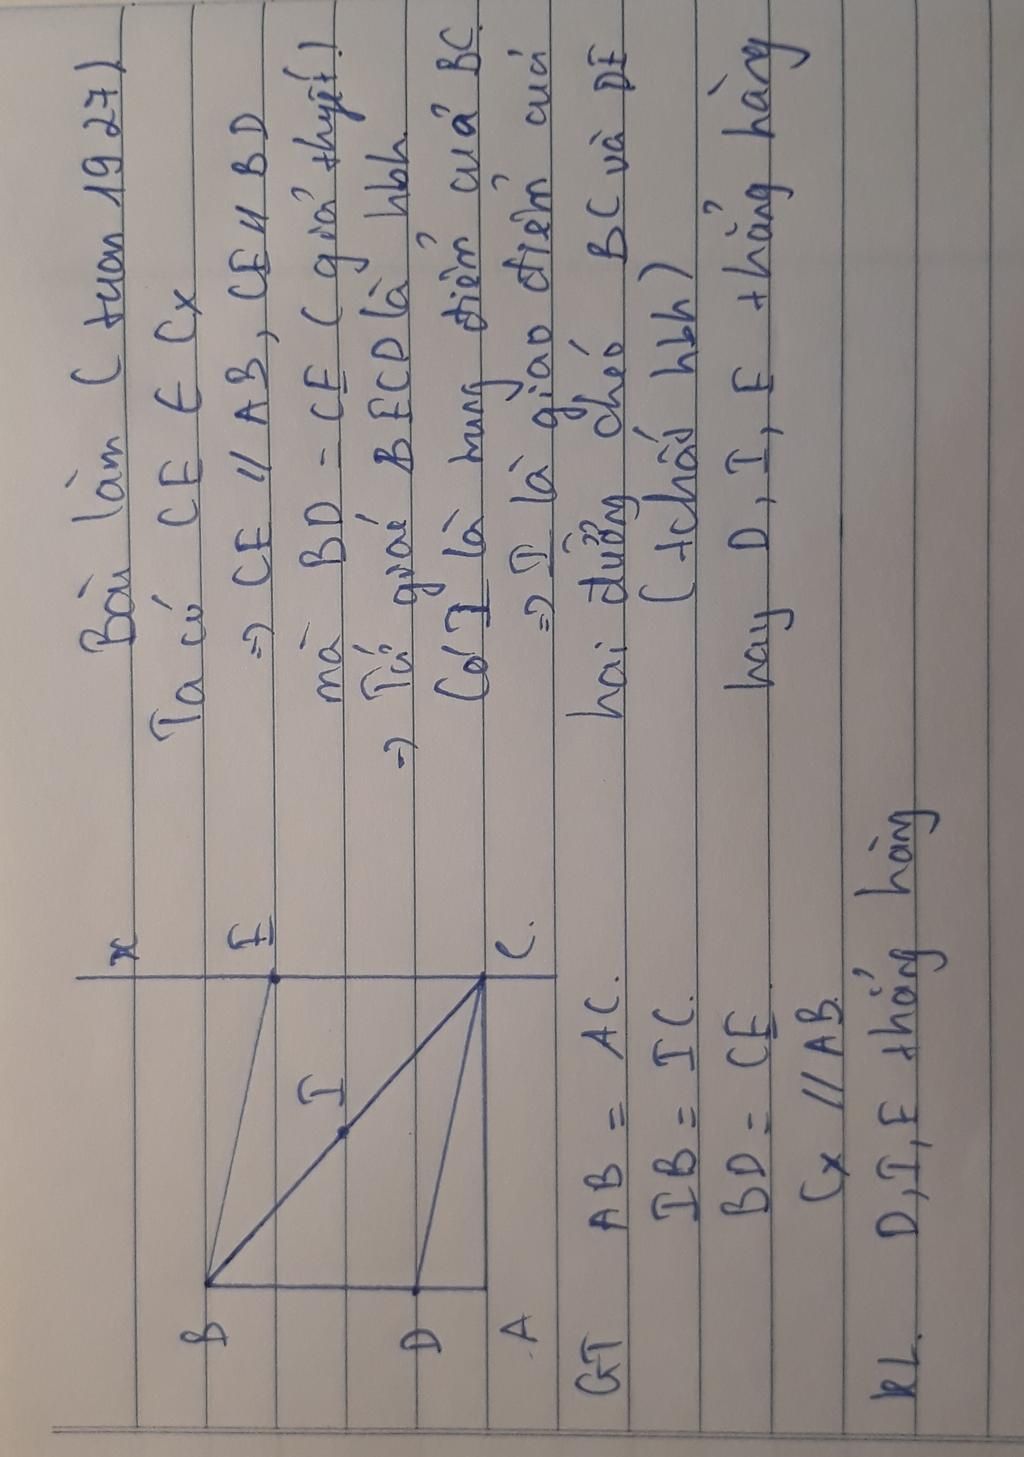 Bài làm (tuan 1927)
Ta có CE ∈ Cx
=> CE // AB, CE // BD
mà BD = CE (giả thyết)
=> Tứ giác BECD là hbh
Có I là trung điểm của BC
=> I là giao điểm của
hai đường chéo BC và DE
(tchất hbh)
hay D, I, E thẳng hàng
x
B
E
I
D
C.
A
GT AB = AC.
IB = IC.
BD = CE.
Cx // AB.
KL. D, I, E thẳng hàng